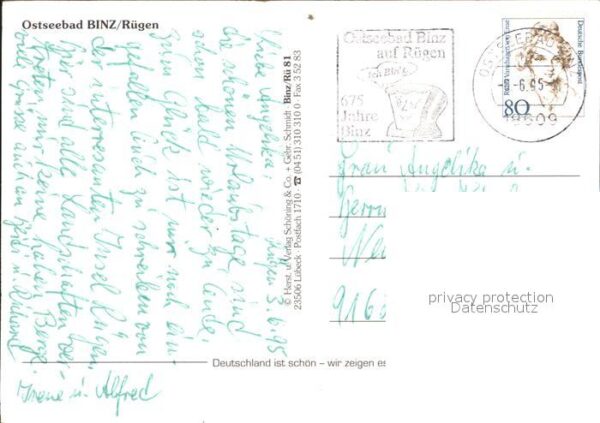 Ostseebad BINZ/Rügen
Rügen 3.6.95
Liebe Angelika!
die schönen Urlaubstage sind
schon bald wieder zu Ende,
zum Glück ist mir noch ein-
gefallen Euch zu schreiben von
der interessanten Insel Rügen,
hier sind alle Landschaften ver-
treten, nur keine hohen Berge.
viele Grüsse auch an Heidi u.
Irene u. Alfred
© Herst. u. Verlag Schöning & Co. + Gebr. Schmidt Binz/Rü 81
23506 Lübeck · Postfach 1710 · ☎ (04 51) 310 310 0 · Fax 3 52 83
Ostseebad Binz
auf Rügen
Ich bin's
BINZ
675
Jahre
Binz
OSTSEEBAD BINZ
-6.95
18609
Deutsche Bundespost
80
Frau Angelika u.
Herrn
916
privacy protection
Datenschutz
Deutschland ist schön – wir zeigen es